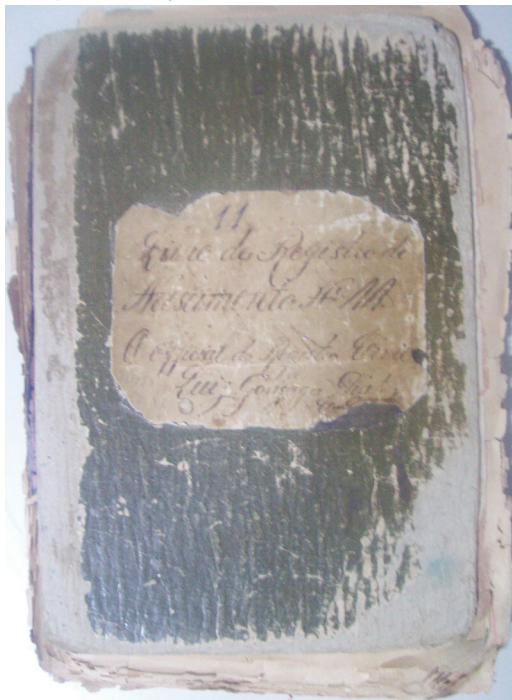 11
Livro de Registro de
Nascimento Nº 11
O official do Registro Civil
Luiz Gonzaga